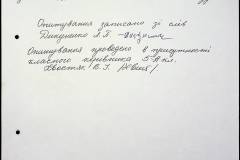 Опитування записано зі слів
Дикуненко Л.П.
Опитування проведено в присутності
класного керівника 5-А кл.